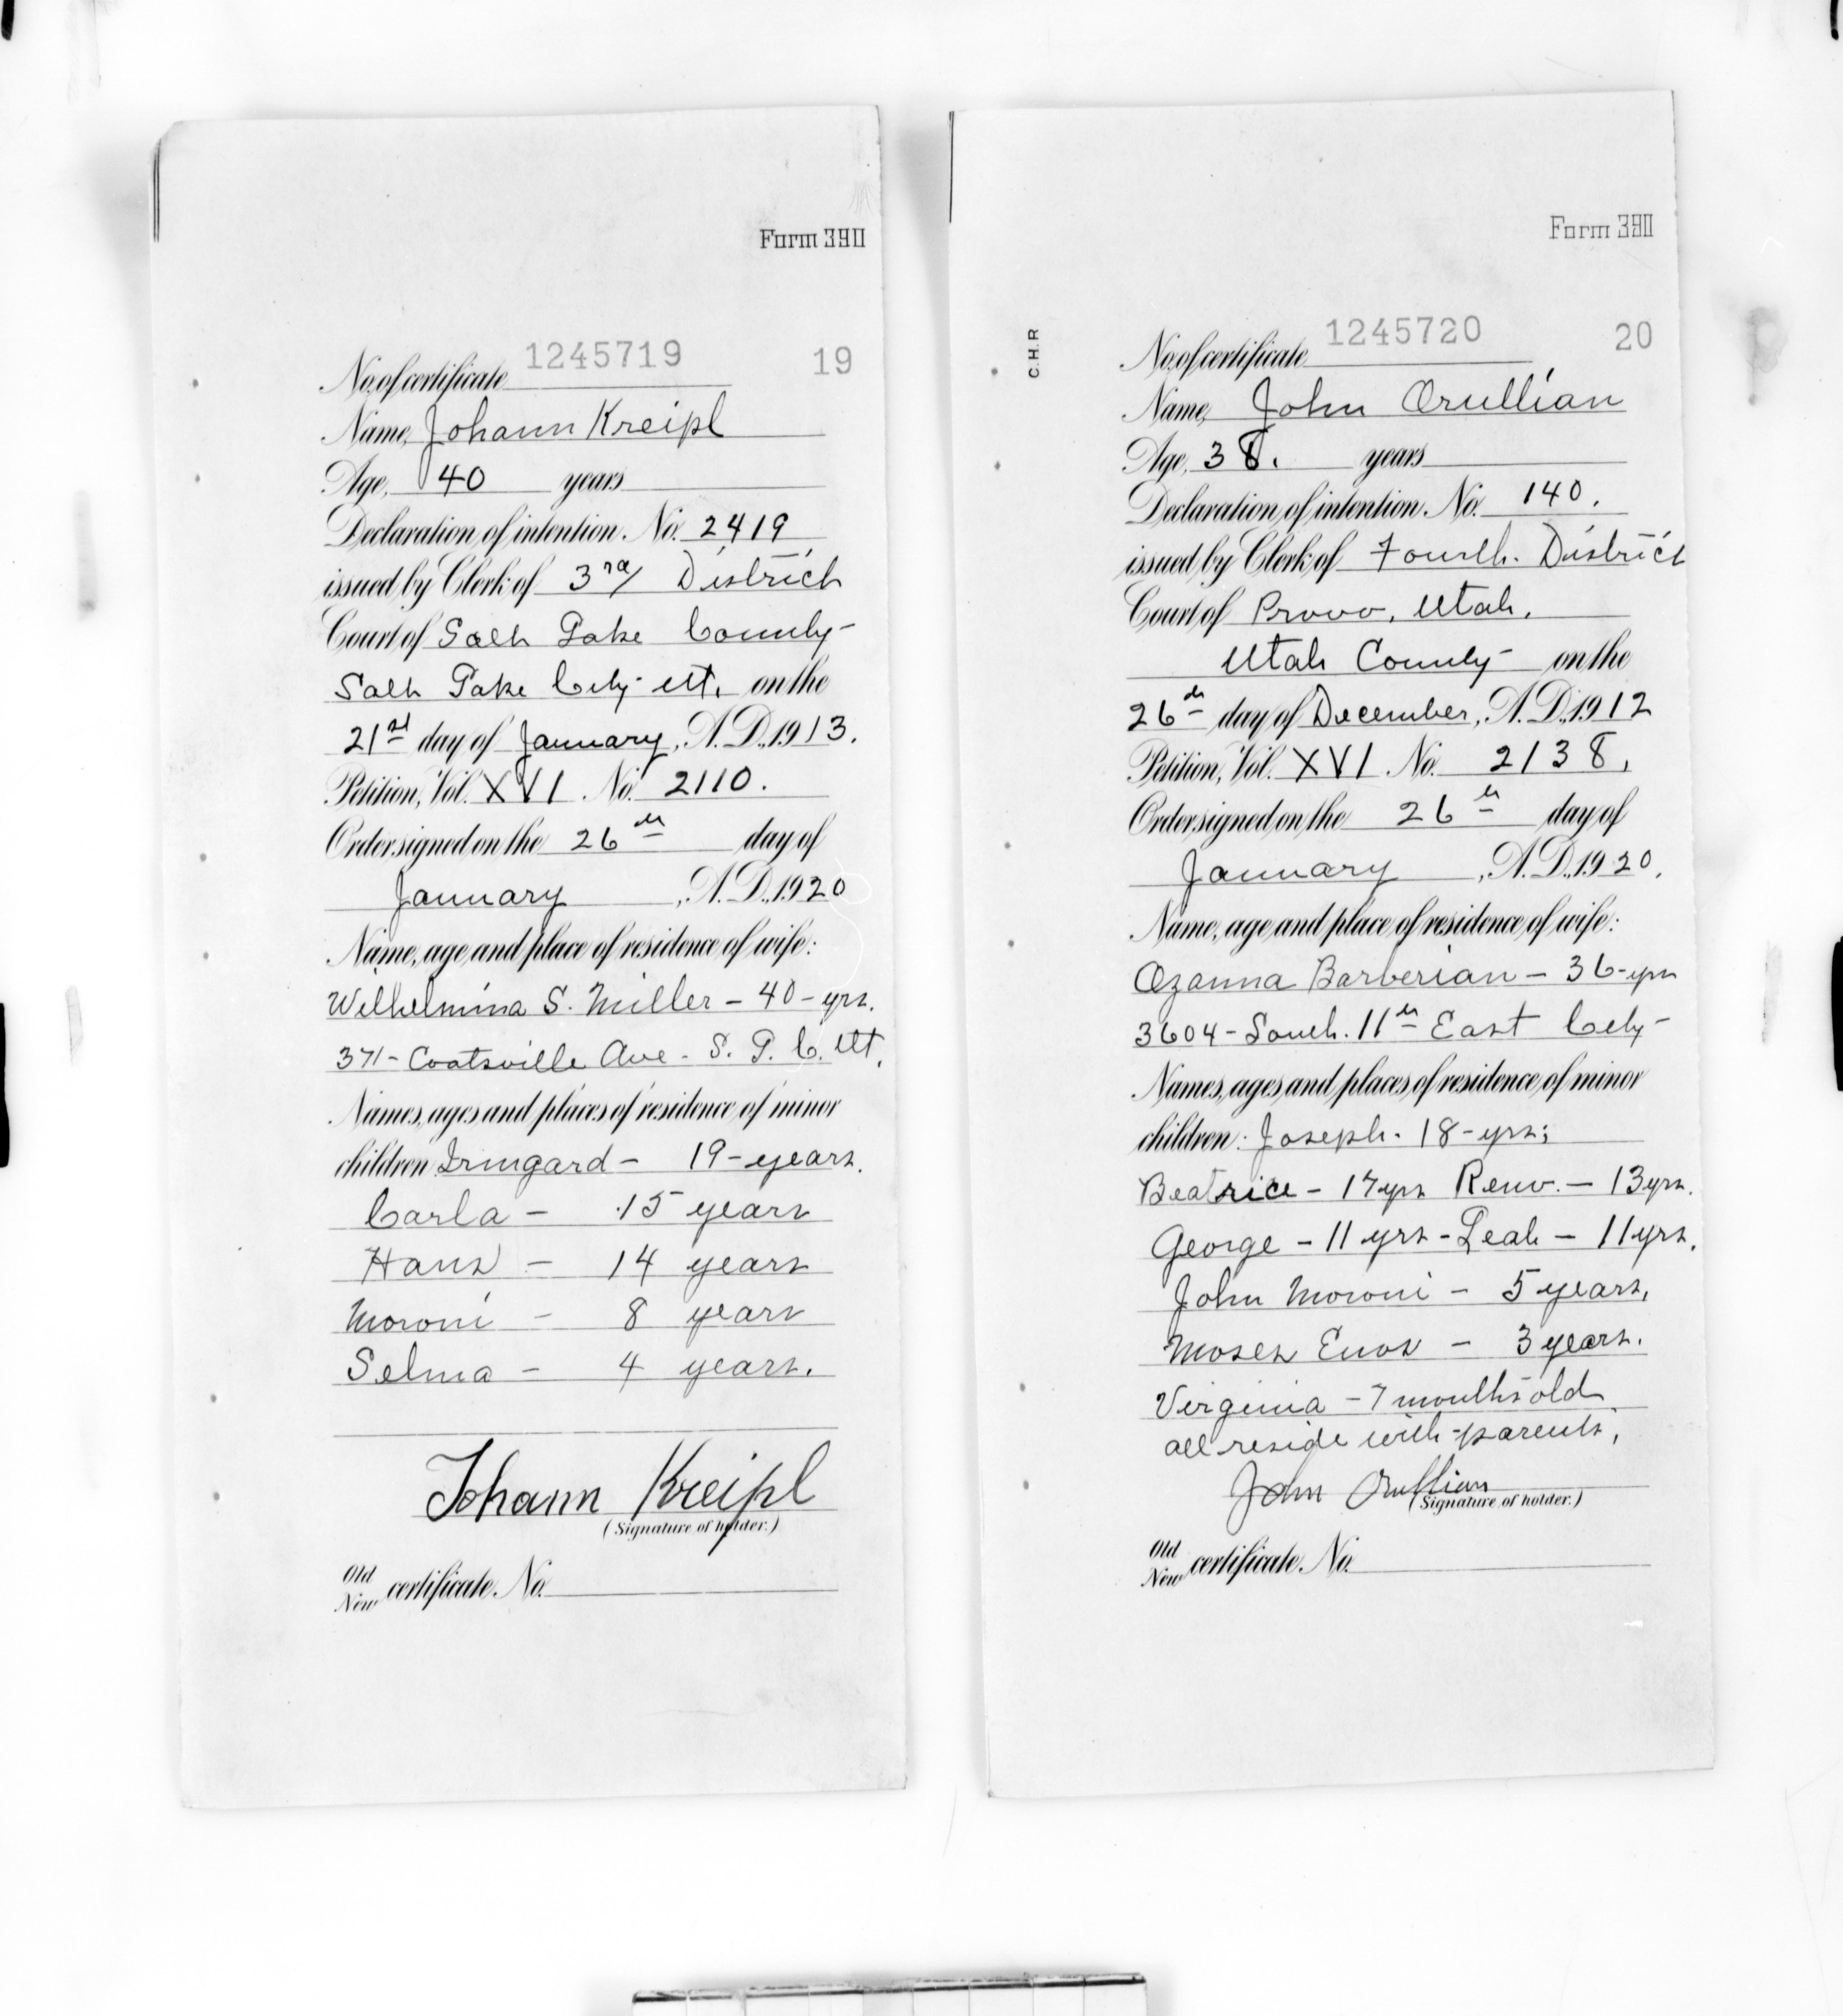 Form 390
No. of certificate 1245719 19
Name, Johann Kreipl
Age, 40 years
Declaration of intention. No. 2419
issued by Clerk of 3rd District
Court of Salt Lake County
Salt Lake City - Ut. on the
21st day of January, A.D., 1913.
Petition, Vol. XVI. No. 2110.
Order signed on the 26th day of
January, A.D., 1920
Name, age and place of residence of wife:
Wilhelmina S. Miller - 40 - yrs.
371 - Coatsville Ave - S. L. C. Ut.
Names, ages and places of residence of minor
children Irmgard - 19 - years.
Carla - 15 years
Hans - 14 years
Moroni - 8 years
Selma - 4 years.
Johann Kreipl
(Signature of holder.)
Old
New certificate. No.
Form 390
C.H.R
No. of certificate 1245720 20
Name, John Orullian
Age, 38. years
Declaration of intention. No. 140.
issued by Clerk of Fourth. District
Court of Provo, Utah.
Utah County on the
26th day of December, A.D., 1912
Petition, Vol. XVI. No. 2138.
Order signed on the 26th day of
January, A.D., 1920.
Name, age and place of residence of wife:
Ozanna Barberian - 36 - yrs
3604 - South. 11th East City -
Names, ages and places of residence of minor
children: Joseph - 18 - yrs;
Beatrice - 17 yrs Reno. - 13 yrs.
George - 11 yrs - Leah - 11 yrs.
John Moroni - 5 years.
Moses Enos - 3 years.
Virginia - 7 months old
all reside with parents.
John Orullian
(Signature of holder.)
Old
New certificate. No.